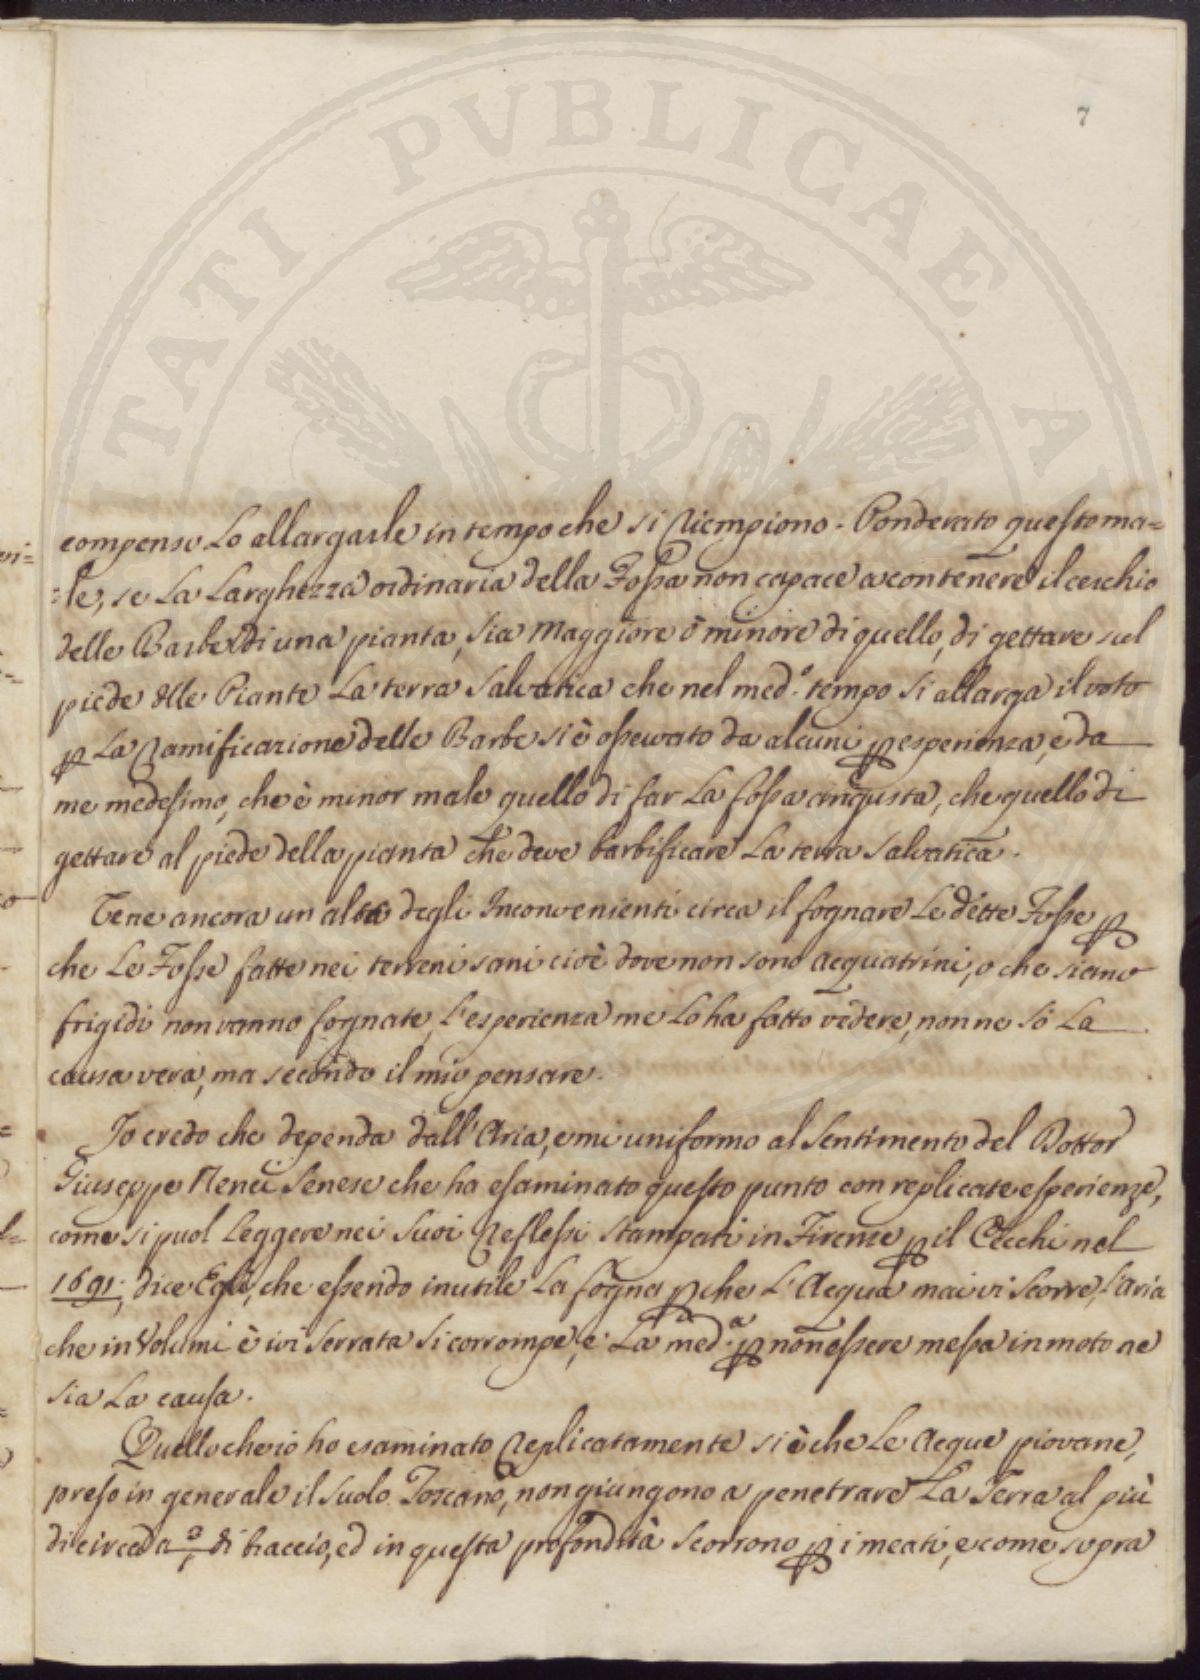 7
compenso Lo allargarle in tempo che si riempiono. Ponderato questo ma=
=le, se La Larghezza ordinaria della Fossa non capace a contenere il cerchio
delle Barbe di una pianta, sia Maggiore ò minore di quello, di gettare sul
piede dlle Piante La terra Salvatica che nel med.º tempo si allarga il voto
ꝑ La ramificazione delle Barbe si è osservato da alcuni ꝑ esperienza, e da
me medesimo, che è minor male quello di far La fossa angusta, che quello di
gettare al piede della pianta che deve barbificare La terra salvatica.
ancora un degli Inconvenienti circa il fognare Le dette Fosse ꝑ
che Le Fosse fatte nei terreni sani cioè dove non sono Acquatrini, o che siano
frigidi non vanno fognate, L'esperienza me Lo ha fatto vedere, non ne sò La
causa vera, ma secondo il mio pensare.
Io credo che dependa dall'Aria, e mi uniformo al Sentimento del Dottor
Giuseppe Nenci Senese che ha esaminato questo punto con replicate esperienze,
come si puol Leggere nei Suoi Reflessi Stampati in Firenze ꝑ il Cecchi nel
1691; dice Egli, che essendo inutile La fogna ꝑche L'Acqua mai vi Scorre, l'Aria
che in Volumi è ivi Serrata si corrompe, e La med.ª ꝑ non essere messa in moto ne
sia La causa.
Quello che io ho esaminato replicatamente si è che Le Acque piovane,
preso in generale il Suolo Toscano, non giungono a penetrare La Terra al più
di circa da di braccio, ed in questa profondità Scorrono ꝑ i meati, e come sopra
PVBLICAE